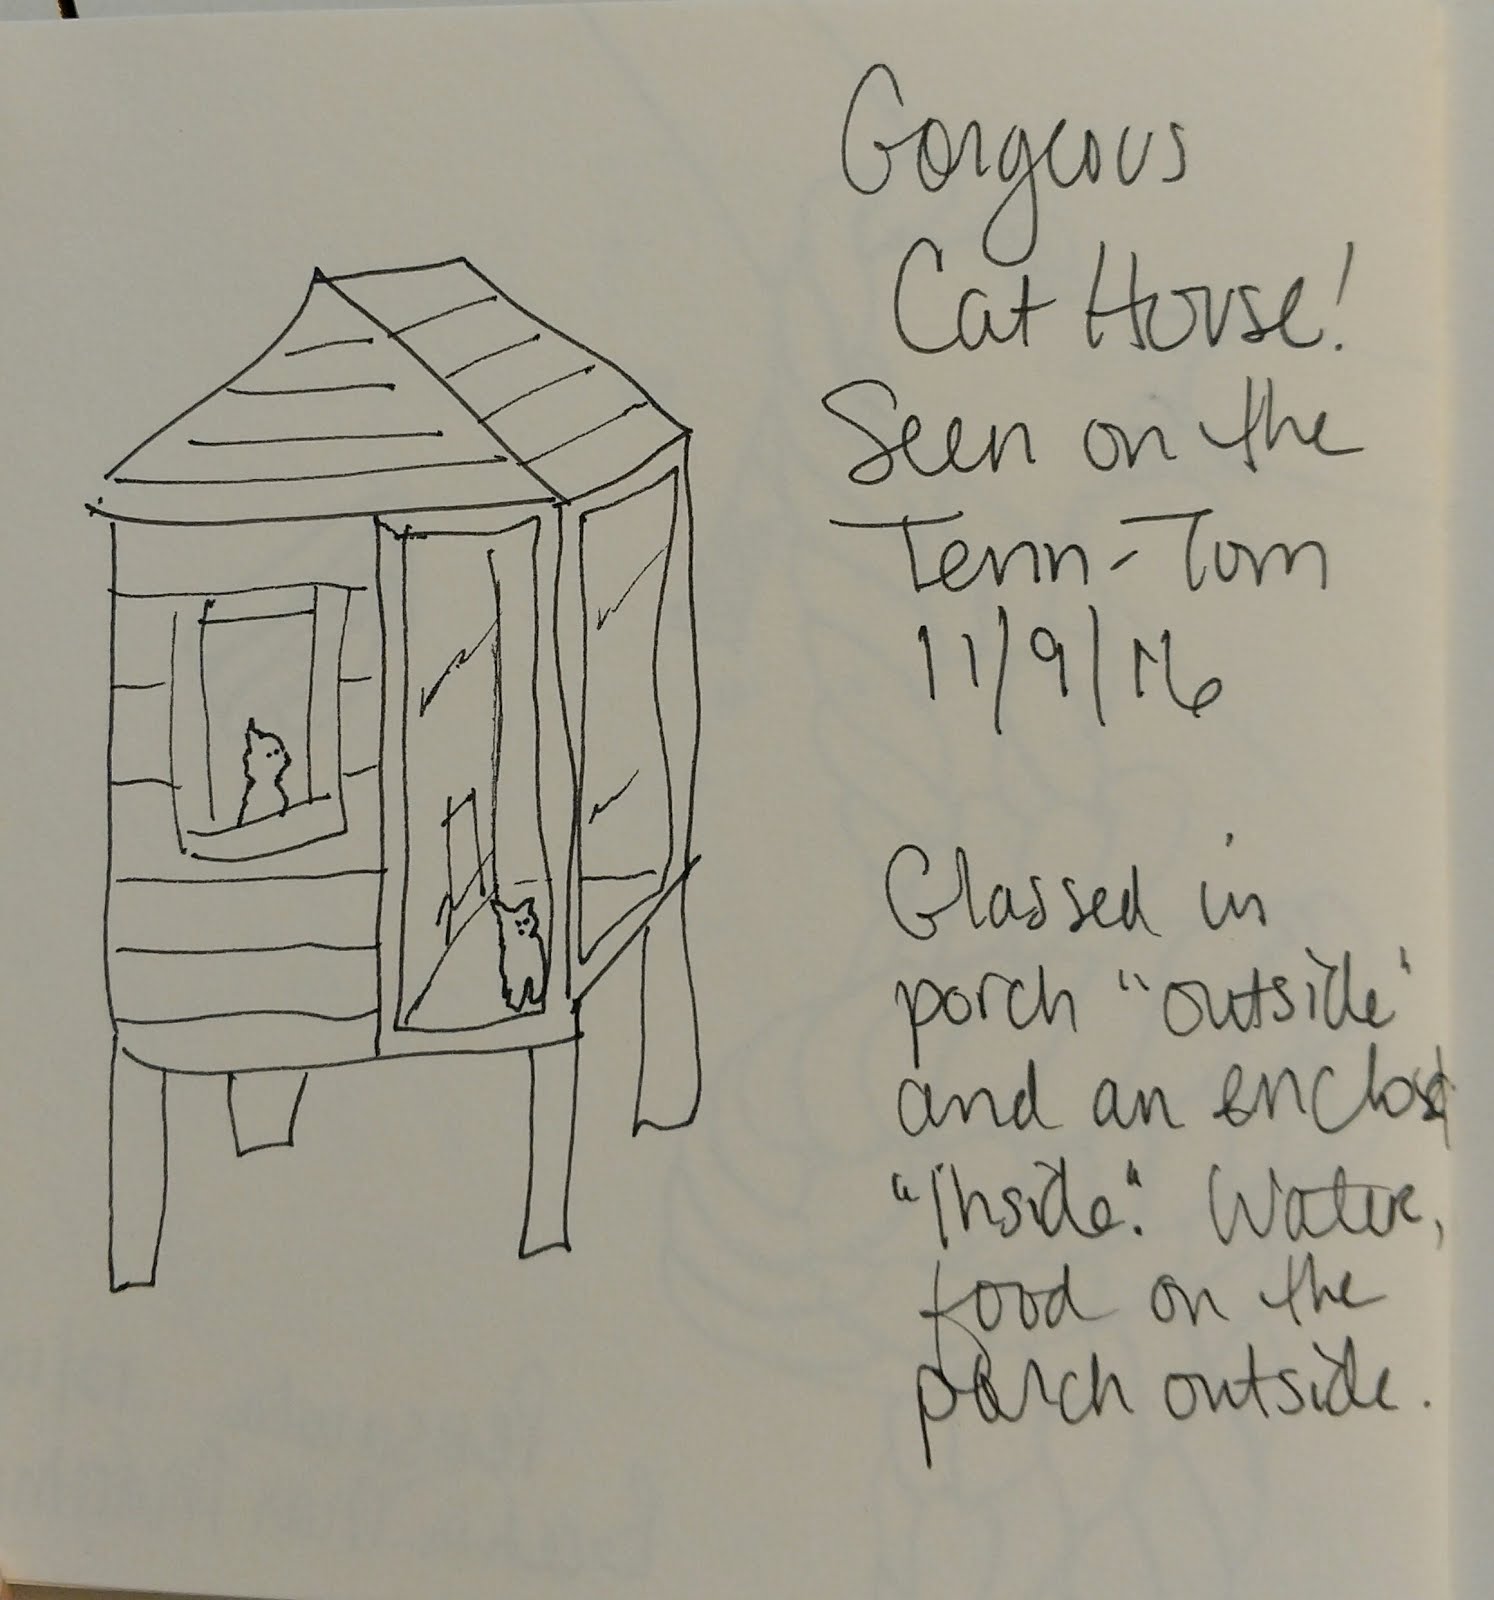 Gorgeous
Cat House!
Seen on the
Tenn-Tom
11/9/16
Glassed in
porch "outside"
and an enclosd
"inside". Water,
food on the
porch outside.